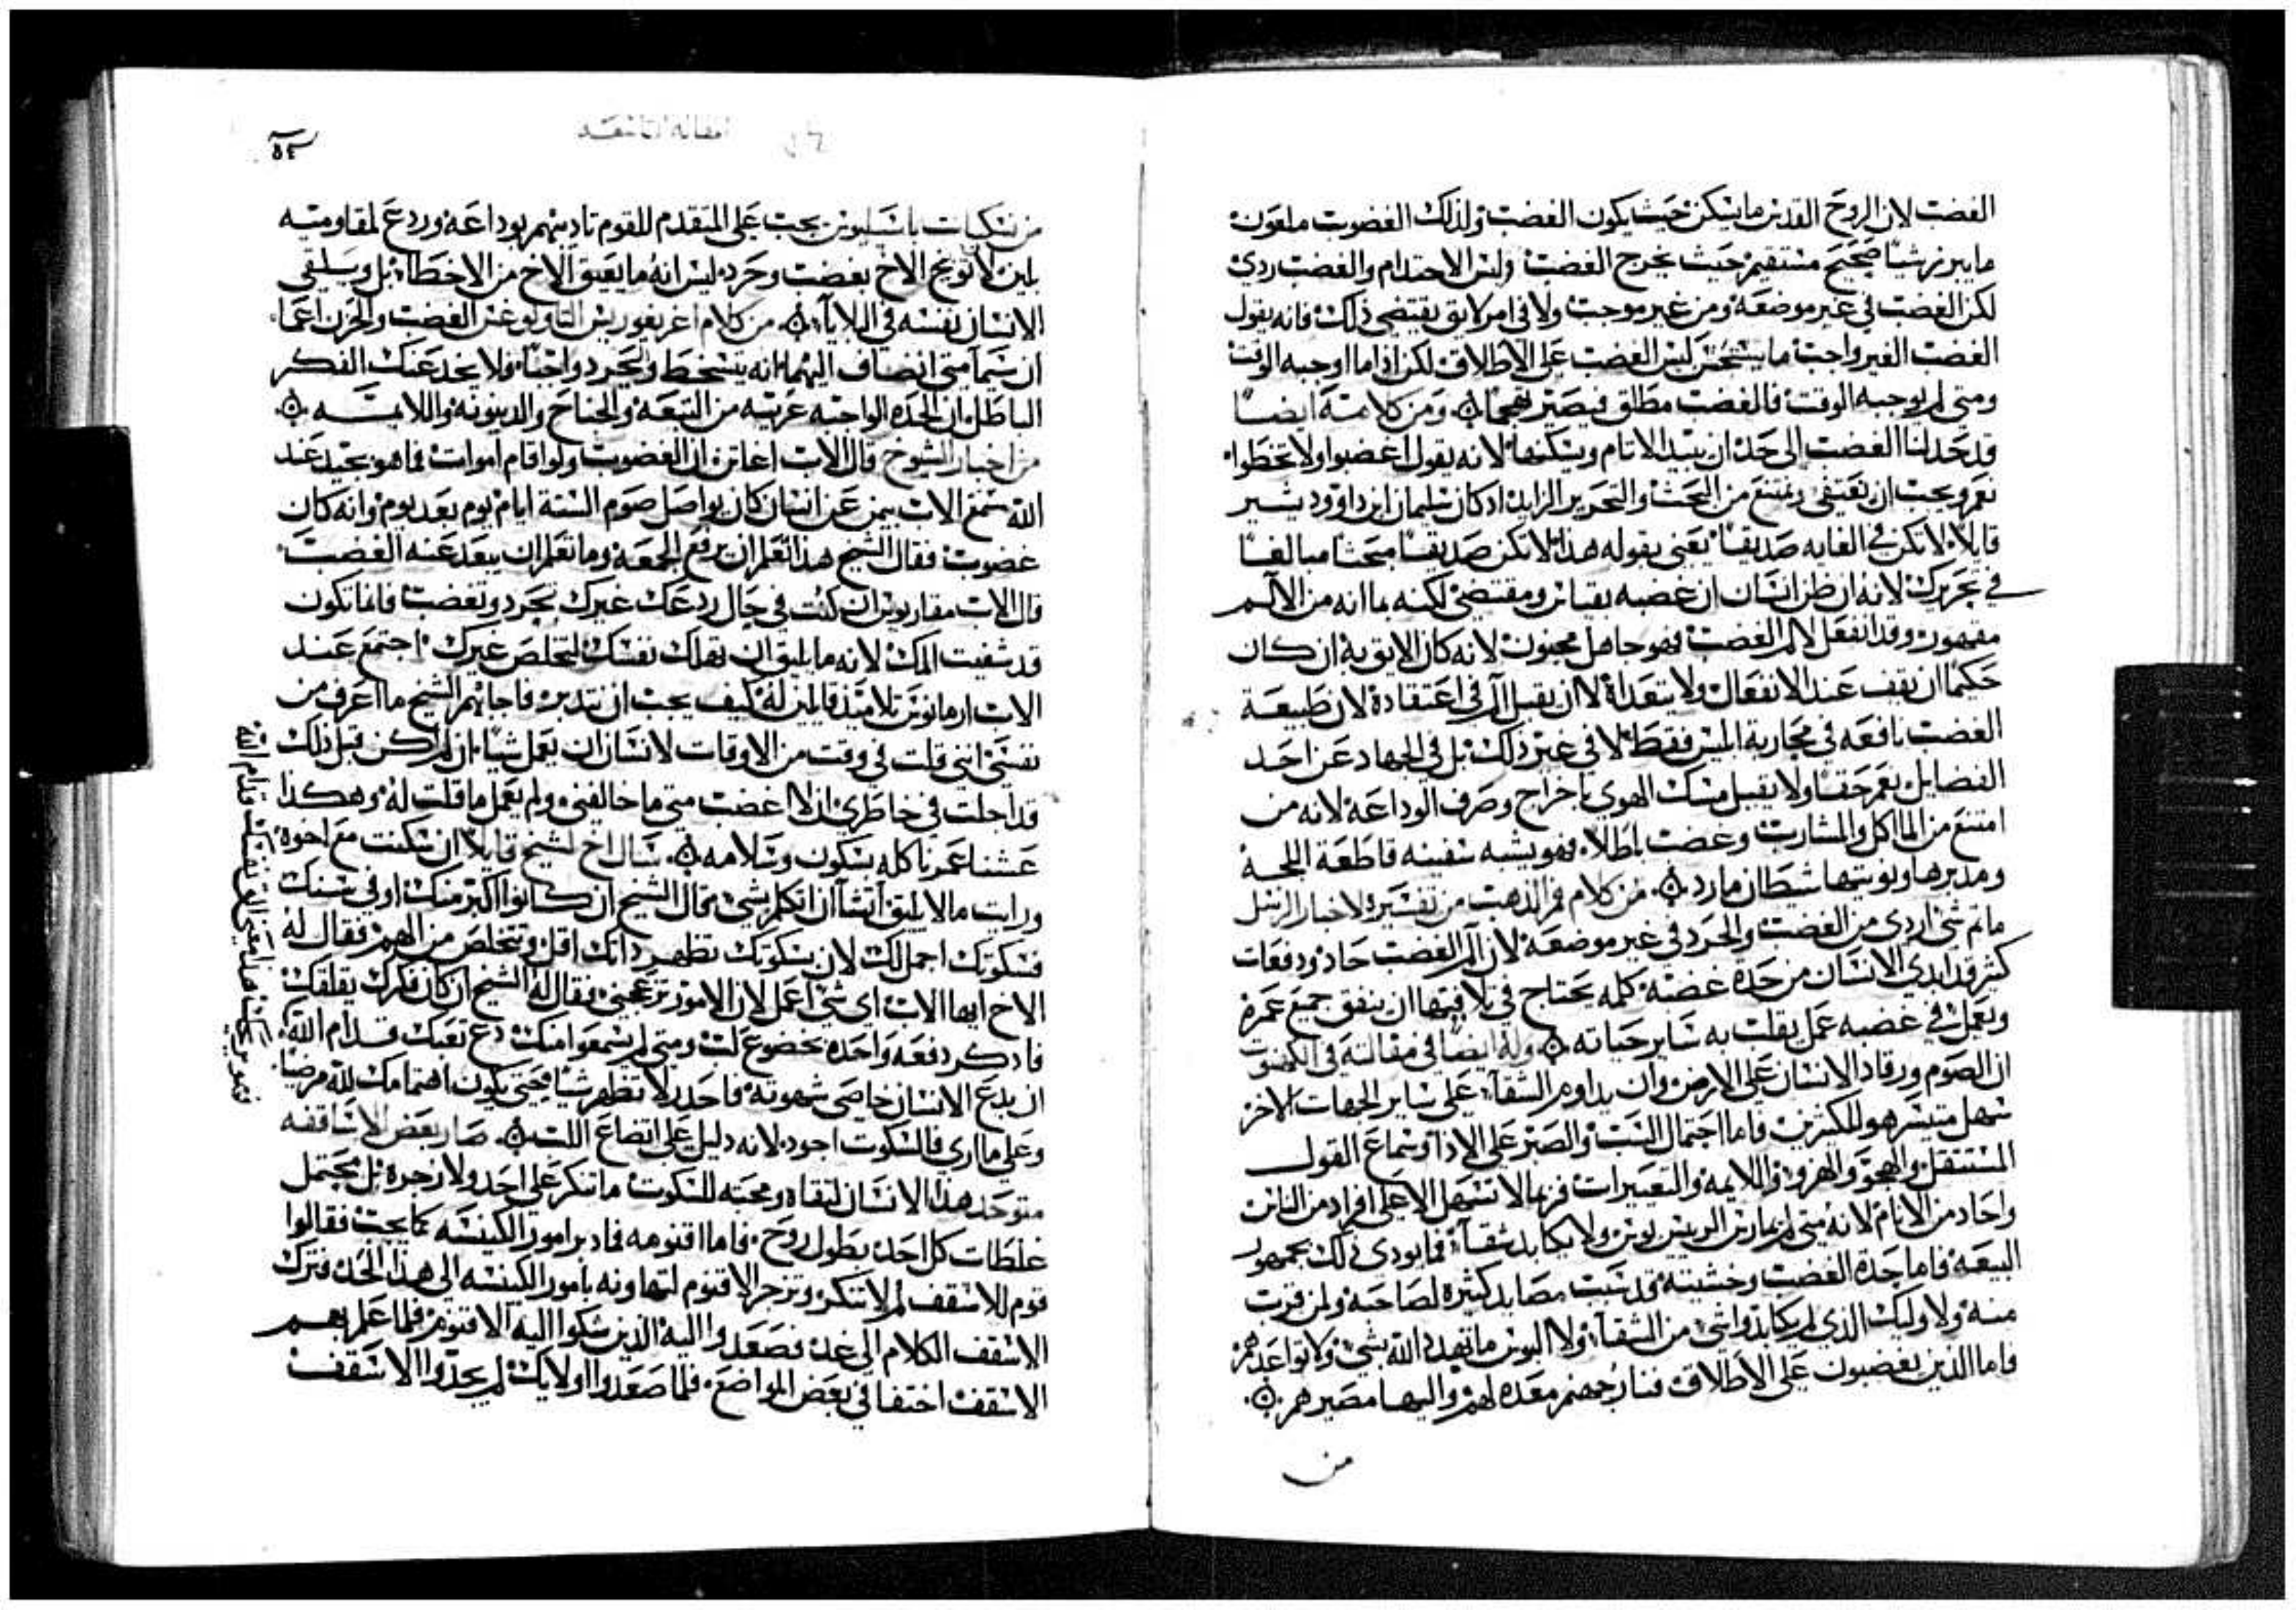 الغضب لان الروح القدس ما يسكن حيث يكون الغضب ولذلك الغضوب ملعون
ما يبرز شيًا صحيح مستقيم حيث يخرج الغضب وليس الاحتدام والغضب ردى
لكن الغضب في غير موضعه ومن غير موجب ولا في امر لايق يقتضي ذلك فانه يقول
الغضب الغير واجب ما يستحسن ليس الغضب على الاطلاق لكن اذا ما اوجبه الوقت
ومتى لم يوجبه الوقت فالغضب مطلق فيصير همجيًا ومن كلامه ايضًا
قد حد لنا الغضب الى حد ان يبيد الاثام ويسكنها لانه يقول اغضبوا ولا تخطوا
نعم ويجب ان نعتفى ونمتنع من البحث والتحرير الزايد اذ كان سليمان ابن داوود يشير
قايلًا لا تكن في الغايه صديقًا يعنى بقوله هذا لا تكن صديقًا مبحثًا مبالغًا
في تحريرك لانه ان ظن انسان ان غضبه بقياس ومقتضى لكنه بما انه من الالم
مقهور وقد انفعل لالم الغضب فهو جاهل مجنون لانه كان الايق به ان كان
حكيمًا ان يقف عند الانفعال ولا يتعداه لا ان يقبل الم في اعتقاده لان طبيعة
الغضب نافعه في محاربة ابليس فقط لا في غير ذلك بل في الجهاد عن احد
الفضايل نعم حقًا ولا يقبل مسك الهوى باخراج وصرف الوداعه لانه من
امتنع من الماكل والمشارب وغضب باطلًا فهو يشبه سفينه قاطعة اللجه
ومدبرها ونوتيها شيطان مارد من كلام فم الذهب من تفسيره لاخبار الرسل
ما ثم شى اردى من الغضب والحرد في غير موضعه لان الم الغضب حاد ودفعات
كثر قد ابدى الانسان من حدة غضبه كلمه يحتاج في تلافيها ان ينفق جميع عمره
وبعمل في غضبه عمل يقلب به ساير حياته وله ايضًا في مقالته في الكهنوت
ان الصوم ورقاد الانسان على الارض وان يداوم الشقاء على ساير الجهات الاخر
سهل متيسر هو للكثيرين فاما احتمال السب والصبر على الاذا وسماع القول
المستثقل والهجو والهزو واللايمه والتعييرات فربما لا تسهل الا على افراد من الناس
واحاد من الانام لانه متى لم يمارس الرييس بوس ولا يكابد شقاء فما يودى ذلك بجمهور
البيعه فاما حدة الغضب وخشيته قد سببت مصايد كثيره لصاحبه ولمن قرب
منه ولاوليك الذي لم يكابدوا شى من الشقاء ولا البوس ما تهدد الله بشى ولا تواعدهم
فاما الذين يغضبون على الاطلاق فنار جهنم معده لهم واليها مصيرهم
من
المقاله التاسعه
٥٤
من نسكيات باسيليوس يجب على المتقدم للقوم تاديبهم بوداعه وردع لمقاومته
بلين لا توبيخ الاخ بغضب وحرد ليس انه ما يعتق الاخ من الاخطاء بل ويلقى
الانسان نفسه في البلايا من كلام اغريغوريس الثاولوغس الغضب والحزن اعما
ان سيما متى انضاف اليهما انه يتسخط ويحرد واجبًا ولا يخدعنك الفكر
الباطل ان الحده الواجبه عريه من التبعه والجناح والدينونه واللايمه
من اخبار الشيوخ قال الاب اغاثن ان الغضوب ولو اقام اموات فما هو بجيد عند
الله سمع الاب بيمن عن انسان كان يواصل صوم الستة ايام يوم بعد يوم وانه كان
غضوب فقال الشيخ هذا تعلم ان يرفع الجمعه وما تعلم ان يبعد عنه الغضب
قال الاب مقاريوس ان كنت في حال ردعك غيرك تحرد وتغضب فانما تكون
قد شفيت المك لانه ما يليق ان تهلك نفسك لتخلص غيرك اجتمع عند
الاب ارمانوس تلاميذ قايلين له كيف يجب ان نتدبر فاجابهم الشيخ ما اعرف من
نفسى اننى قلت في وقت من الاوقات لانسان ان يعمل شيًا ان لم اكن قبل ذلك
قد احلت في خاطرى ان لا اغضب متى ما خالفنى ولم يعمل ما قلت له وهكذا
عشنا عمرنا كله بسكون وسلامه سال اخ لشيخ قايلًا ان سكنت مع اخوه
ورايت ما لا يليق اتشا ان اتكلم بشى فقال الشيخ ان كانوا اكبر منك او في سنك
فسكوتك اجمل لك لان بسكوتك تظهر ذاتك اقل وتتخلص من الهم فقال له
الاخ ايها الاب اى شى اعمل لان الامور تزعجنى فقال له الشيخ ان كان فكرك يقلقك
فاذكر دفعه واحده بخضوع لب ومتى لم يسمعوا منك دع تعبك قدام الله
ان يدع الانسان خاصى شهوته فاحذر لا تظهر شيًا فحتى يكون اهتمامك لله مرضيًا
وعلى ما ارى فالسكوت اجود لانه دليل على اتضاع اللب صار بعض الاساقفه
متوحد هذا الانسان لتقاه ومحبته للسكوت ما تنكر على احد ولا زجره بل يحتمل
غلطات كل احد بطول روح فاما اقنومه فما دبر امور الكنيسه كما يجب فقالوا
قوم للاسقف لم لا تنكر وتزجر الاقنوم لتهاونه بامور الكنيسه الى هذا الحد فترك
الاسقف الكلام الى غد فصعدوا اليه الذين شكوا اليه الاقنوم فلما علم بهم
الاسقف اختفا في بعض المواضع فلما صعدوا اولايك لم يجدوا الاسقف